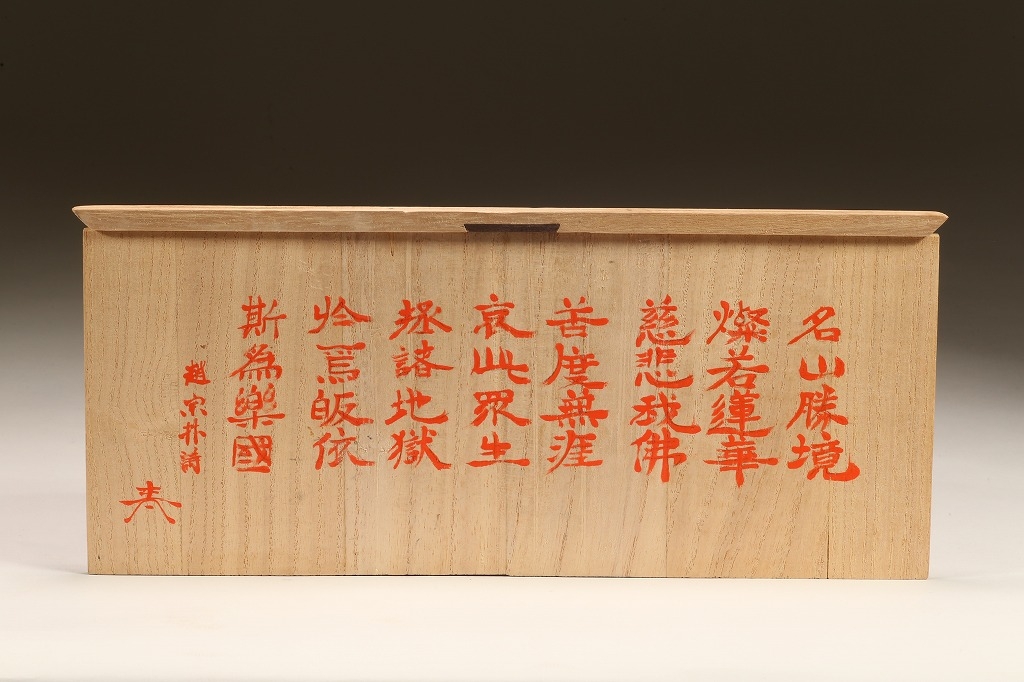 名山勝境
燦若蓮華
慈悲我佛
善度無涯
哀此眾生
拯諸地獄
於焉皈依
斯為樂國
趙宗抃詩